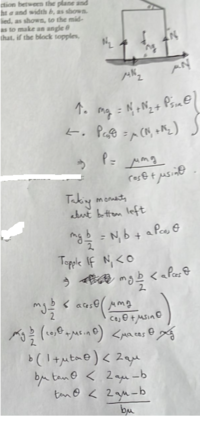 ction between the plane and
ht a and width b, as shown.
lied, as shown, to the mid-
as to make an angle θ
that, if the block topples,
N₂ mg N₁
μN₂ μN₁
↑. mg = N₁ + N₂ + P sin θ
←. P cos θ = μ(N₁ + N₂)
⇒ P = μmg / (cos θ + μ sin θ)
Taking moments
about bottom left
mg b/2 = N₁b + aP cos θ
Topple if N₁ < 0
⇒ mg b/2 < aP cos θ
mg b/2 < a cos θ (μmg / (cos θ + μ sin θ))
mg b/2 (cos θ + μ sin θ) < μa cos θ mg
b(1 + μ tan θ) < 2aμ
bμ tan θ < 2aμ - b
tan θ < (2aμ - b) / bμ